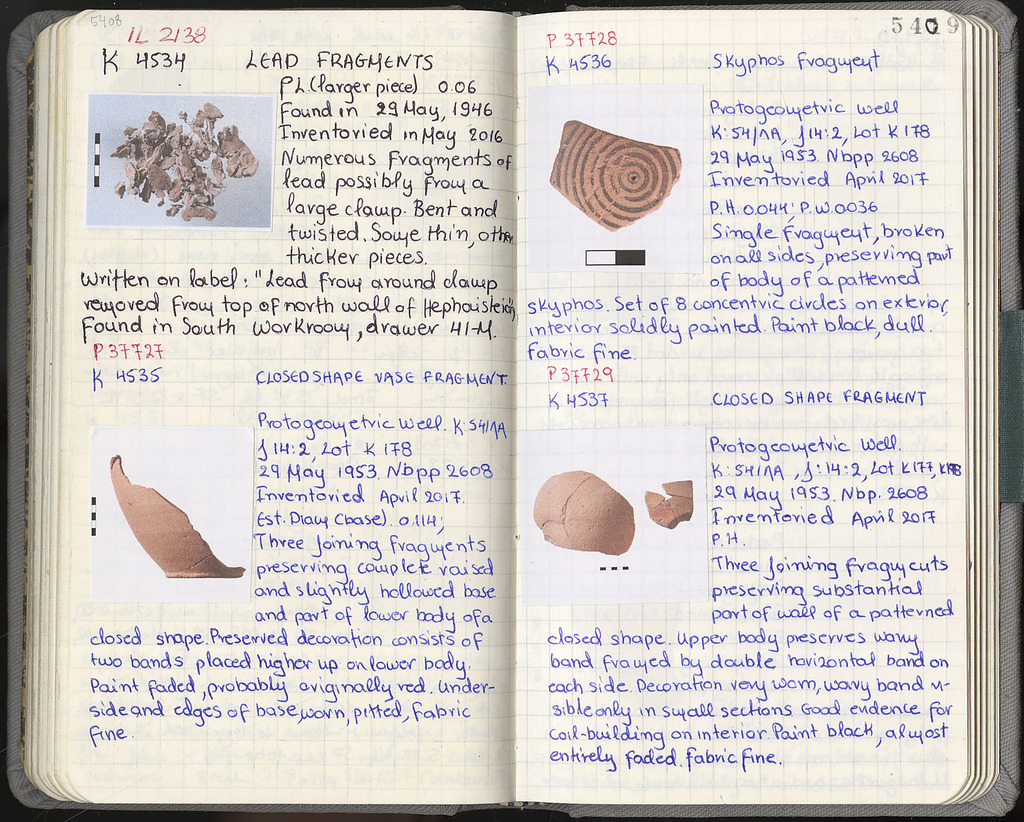 5408
IL 2138
K 4534 LEAD FRAGMENTS
P.L.(larger piece) 0.06
Found in 29 May, 1946
Inventoried in May 2016
Numerous Fragments of
lead possibly from a
large clamp. Bent and
twisted. Some thin, other
thicker pieces.
Written on label: "Lead from around clamp
removed from top of north wall of Hephaisteion",
found in South Workroom, drawer 41-M.
P 37727
K 4535 CLOSED SHAPE VASE FRAGMENT.
Protogeometric well. K:54/1A
J 14:2, Lot K 178
29 May 1953. Nbpp 2608
Inventoried April 2017.
Est. Diam (base). 0.114;
Three joining fragments
preserving complete raised
and slightly hollowed base
and part of lower body of a
closed shape. Preserved decoration consists of
two bands placed higher up on lower body.
Paint faded, probably originally red. Under-
side and edges of base, worn, pitted, fabric
fine.
5409
P 37728
K 4536 Skyphos Fragment
Protogeometric well
K:54/1A, J14:2, Lot K 178
29 May 1953. Nbpp 2608
Inventoried April 2017
P.H. 0.044; P.W. 0.036
Single fragment, broken
on all sides, preserving part
of body of a patterned
skyphos. Set of 8 concentric circles on exterior,
interior solidly painted. Paint black, dull.
Fabric fine.
P 37729
K 4537 CLOSED SHAPE FRAGMENT
Protogeometric well.
K:54/1A, J:14:2, Lot K 177, K 178
29 May 1953. Nbp. 2608
Inventoried April 2017
P.H.
Three joining fragments
preserving substantial
part of wall of a patterned
closed shape. Upper body preserves wavy
band framed by double horizontal band on
each side. Decoration very worn, wavy band vi-
sible only in small sections Good evidence for
coil-building on interior. Paint black, almost
entirely faded. fabric fine.